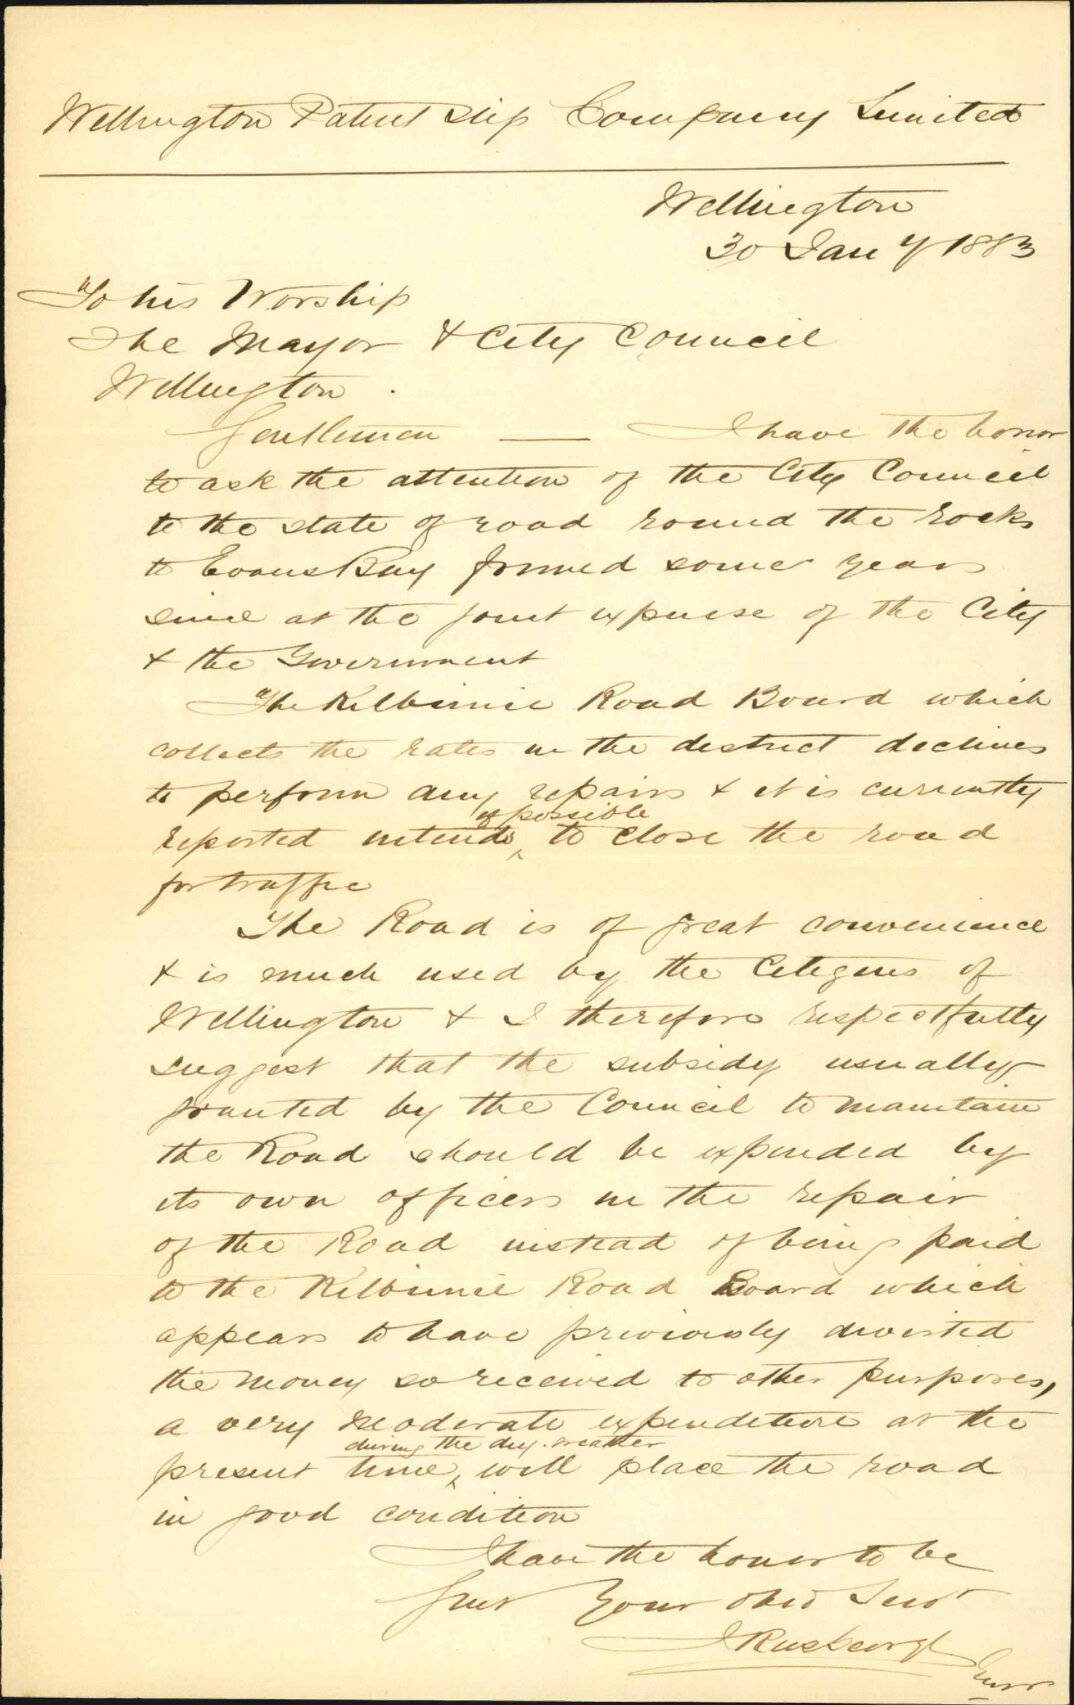 Wellington Patent Slip Company Limited
Wellington
30 Jan y 1883
To his Worship
The Mayor & City Council
Wellington.
Gentlemen — I have the honor
to ask the attention of the City Council
to the state of road round the rocks
to Evans Bay formed some years
since at the joint expense of the City
& the Government
The Kilbirnie Road Board which
collects the rates in the district declines
to perform any repairs & it is currently
if possible
reported intends ‸ to close the road
for traffic
The Road is of great convenience
& is much used by the Citizens of
Wellington & I therefore respectfully
suggest that the subsidy usually
granted by the Council to maintain
the Road should be expended by
its own officers in the repair
of the Road instead of being paid
to the Kilbirnie Road Board which
appears to have previously diverted
the money so received to other purposes,
a very moderate expenditure at the
during the dry weather
present time ‸ will place the road
in good condition
I have the honor to be
Gent Your Obed Servt